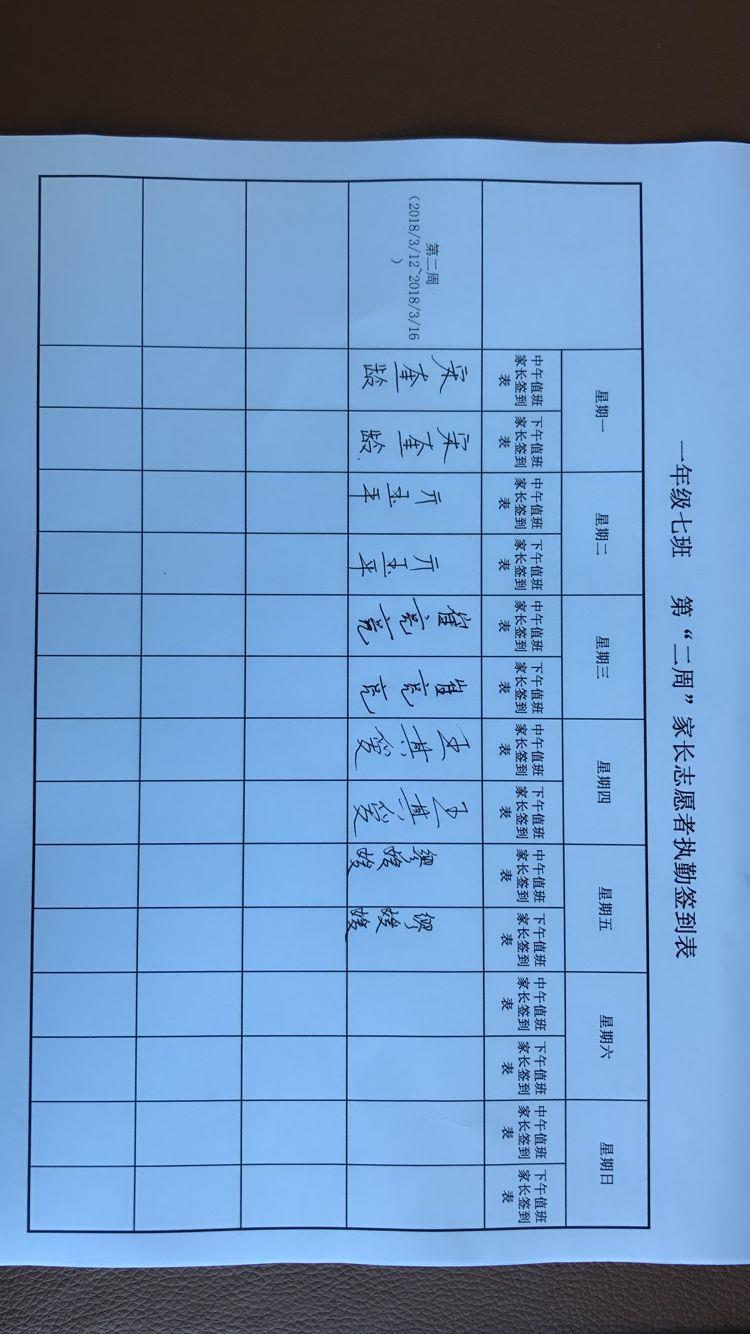 一年级七班 第“二周”家长志愿者执勤签到表
星期一 星期二 星期三 星期四 星期五 星期六 星期日
中午值班家长签到表 下午值班家长签到表 中午值班家长签到表 下午值班家长签到表 中午值班家长签到表 下午值班家长签到表 中午值班家长签到表 下午值班家长签到表 中午值班家长签到表 下午值班家长签到表 中午值班家长签到表 下午值班家长签到表 中午值班家长签到表 下午值班家长签到表
第二周
(2018/3/12~2018/3/16
)
宋 龄 宋 龄 亓玉平 亓玉平 崔亮亮 崔亮亮 王其爱 王其爱 缪姣姣 缪姣姣